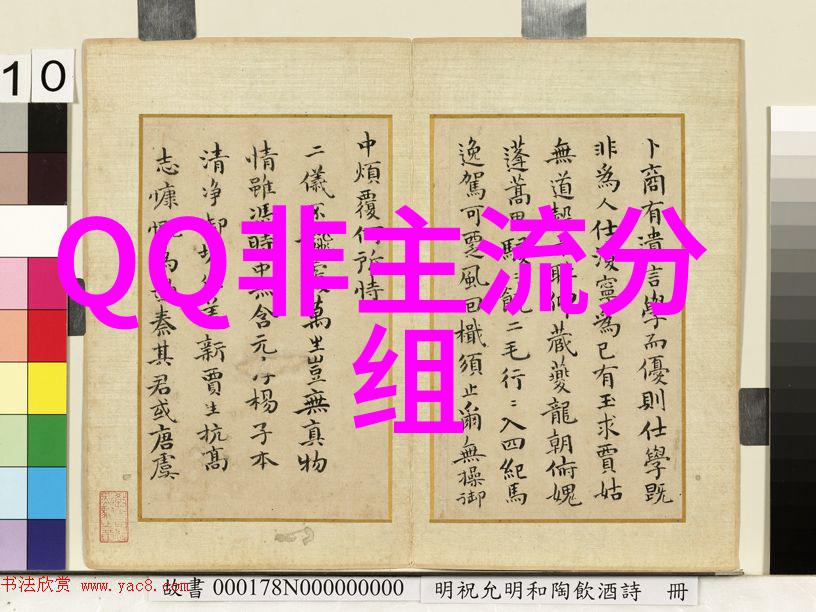 10
QQ非主流分
组
卜商有遺言學而優則仕學既
非為人仕復寧為已有玉求賈姑
無道 聊仰藏夔龍朝俯媿
蓬蒿 二毛行〻入四紀馬
逸駕可 風 檥須止 無操御
中煩覆何所恃
二儀 萬生豈無真物
情雖馮時中 含元 楊子本
清净卻 新賈生抗高
志慷 為 秦其君或唐虞
书法欣赏 www.yac8.com
故書 000178N000000000 明祝允明和陶飲酒詩 冊